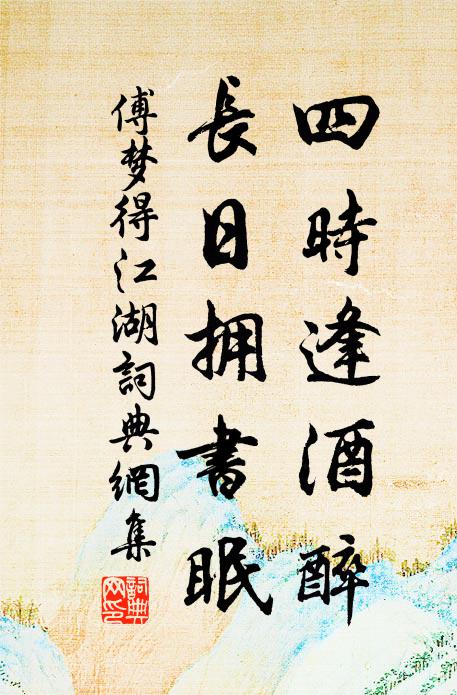 四時逢酒醉
長日拥書眠
傅梦得江湖詞典網集
詞典